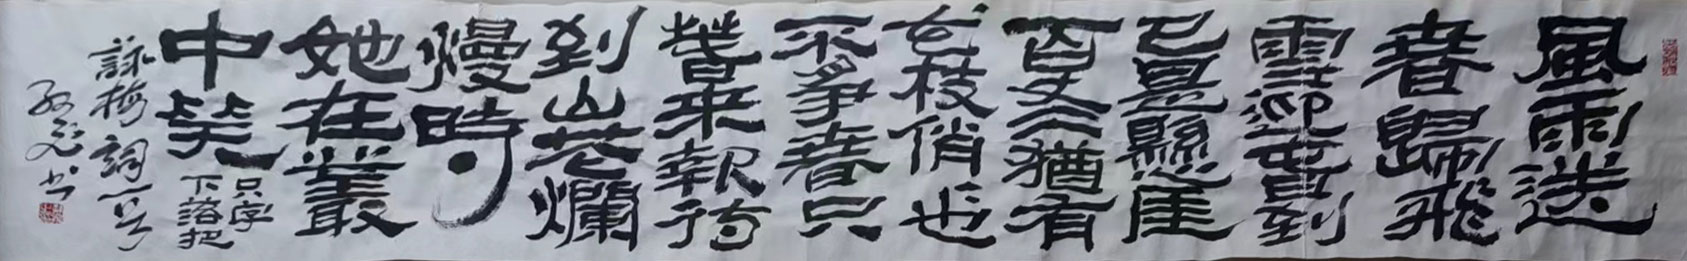 風雨送
春歸飛
雪迎春到
已是懸崖
百丈冰猶有
花枝俏也
不爭春只
春來報待
到山花爛
熳時
她在叢
中笑
只字
下落把
詠梅詞一首
书